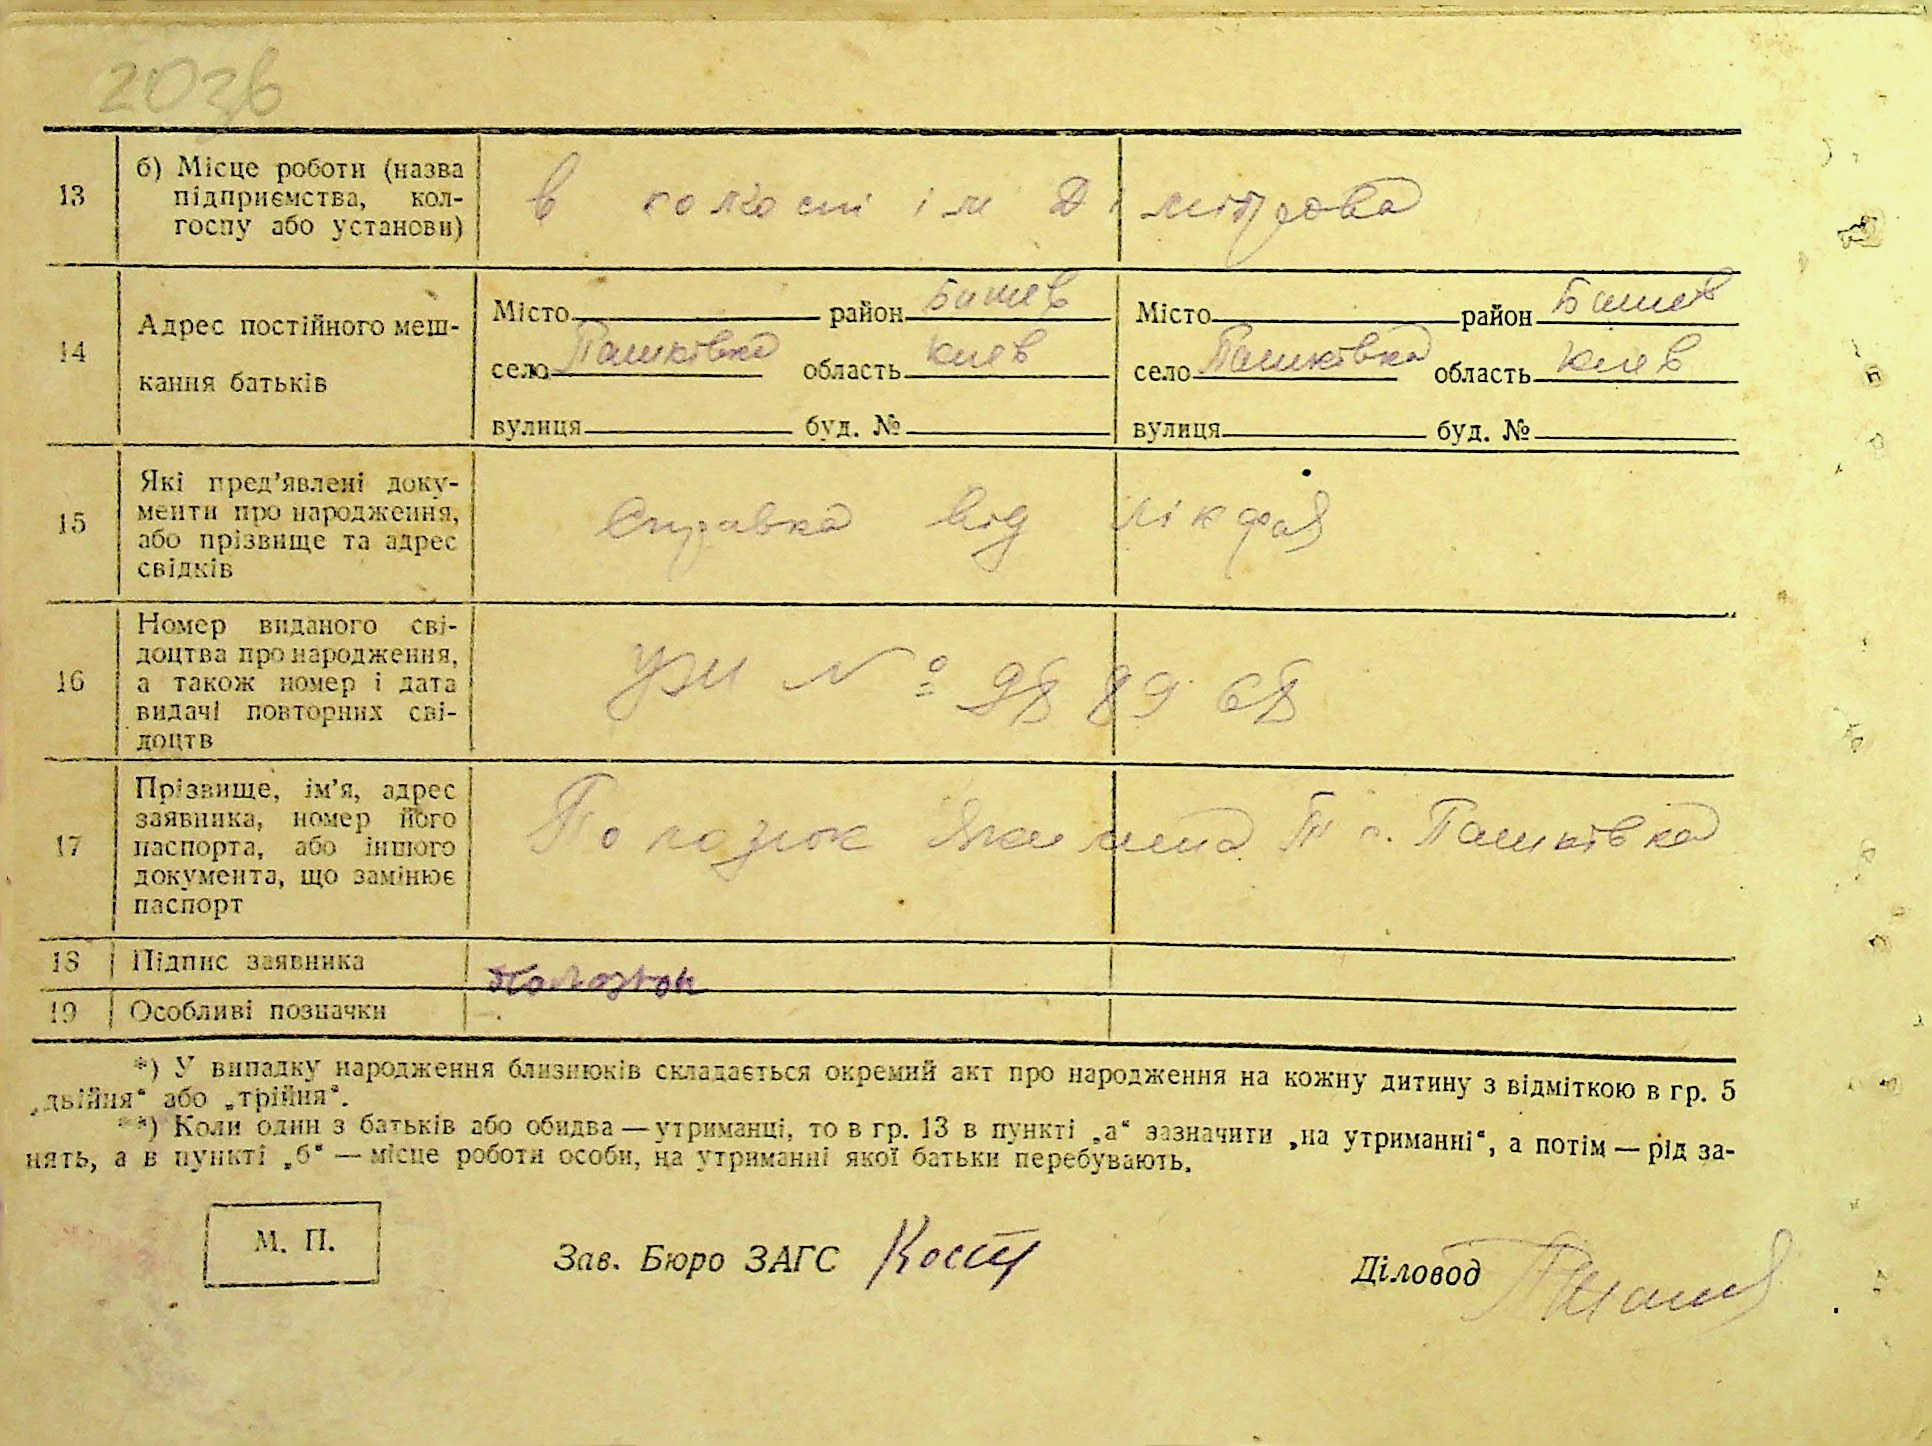 203в
13 б) Місце роботи (назва
підприємства, кол-
госпу або установи)
в колгоспі ім Дімітрова
14 Адрес постійного меш-
кання батьків
Місто район Бишев Місто район Бишев
село Пашківка область Київ село Пашківка область Київ
вулиця буд. № вулиця буд. №
15 Які пред'явлені доку-
менти про народження,
або прізвище та адрес
свідків
Справка від
16 Номер виданого сві-
доцтва про народження,
а також номер і дата
видачі повторних сві-
доцтв
№
17 Прізвище, ім'я, адрес
заявника, номер його
паспорта, або іншого
документа, що замінює
паспорт
П с. Пашківка
18 Підпис заявника
19 Особливі позначки
*) У випадку народження близнюків складається окремий акт про народження на кожну дитину з відміткою в гр. 5
„двійня“ або „трійня“.
**) Коли один з батьків або обидва — утриманці, то в гр. 13 в пункті „а“ зазначити „на утриманні“, а потім — рід за-
нять, а в пункті „б“ — місце роботи особи, на утриманні якої батьки перебувають.
М. П.
Зав. Бюро ЗАГС
Діловод